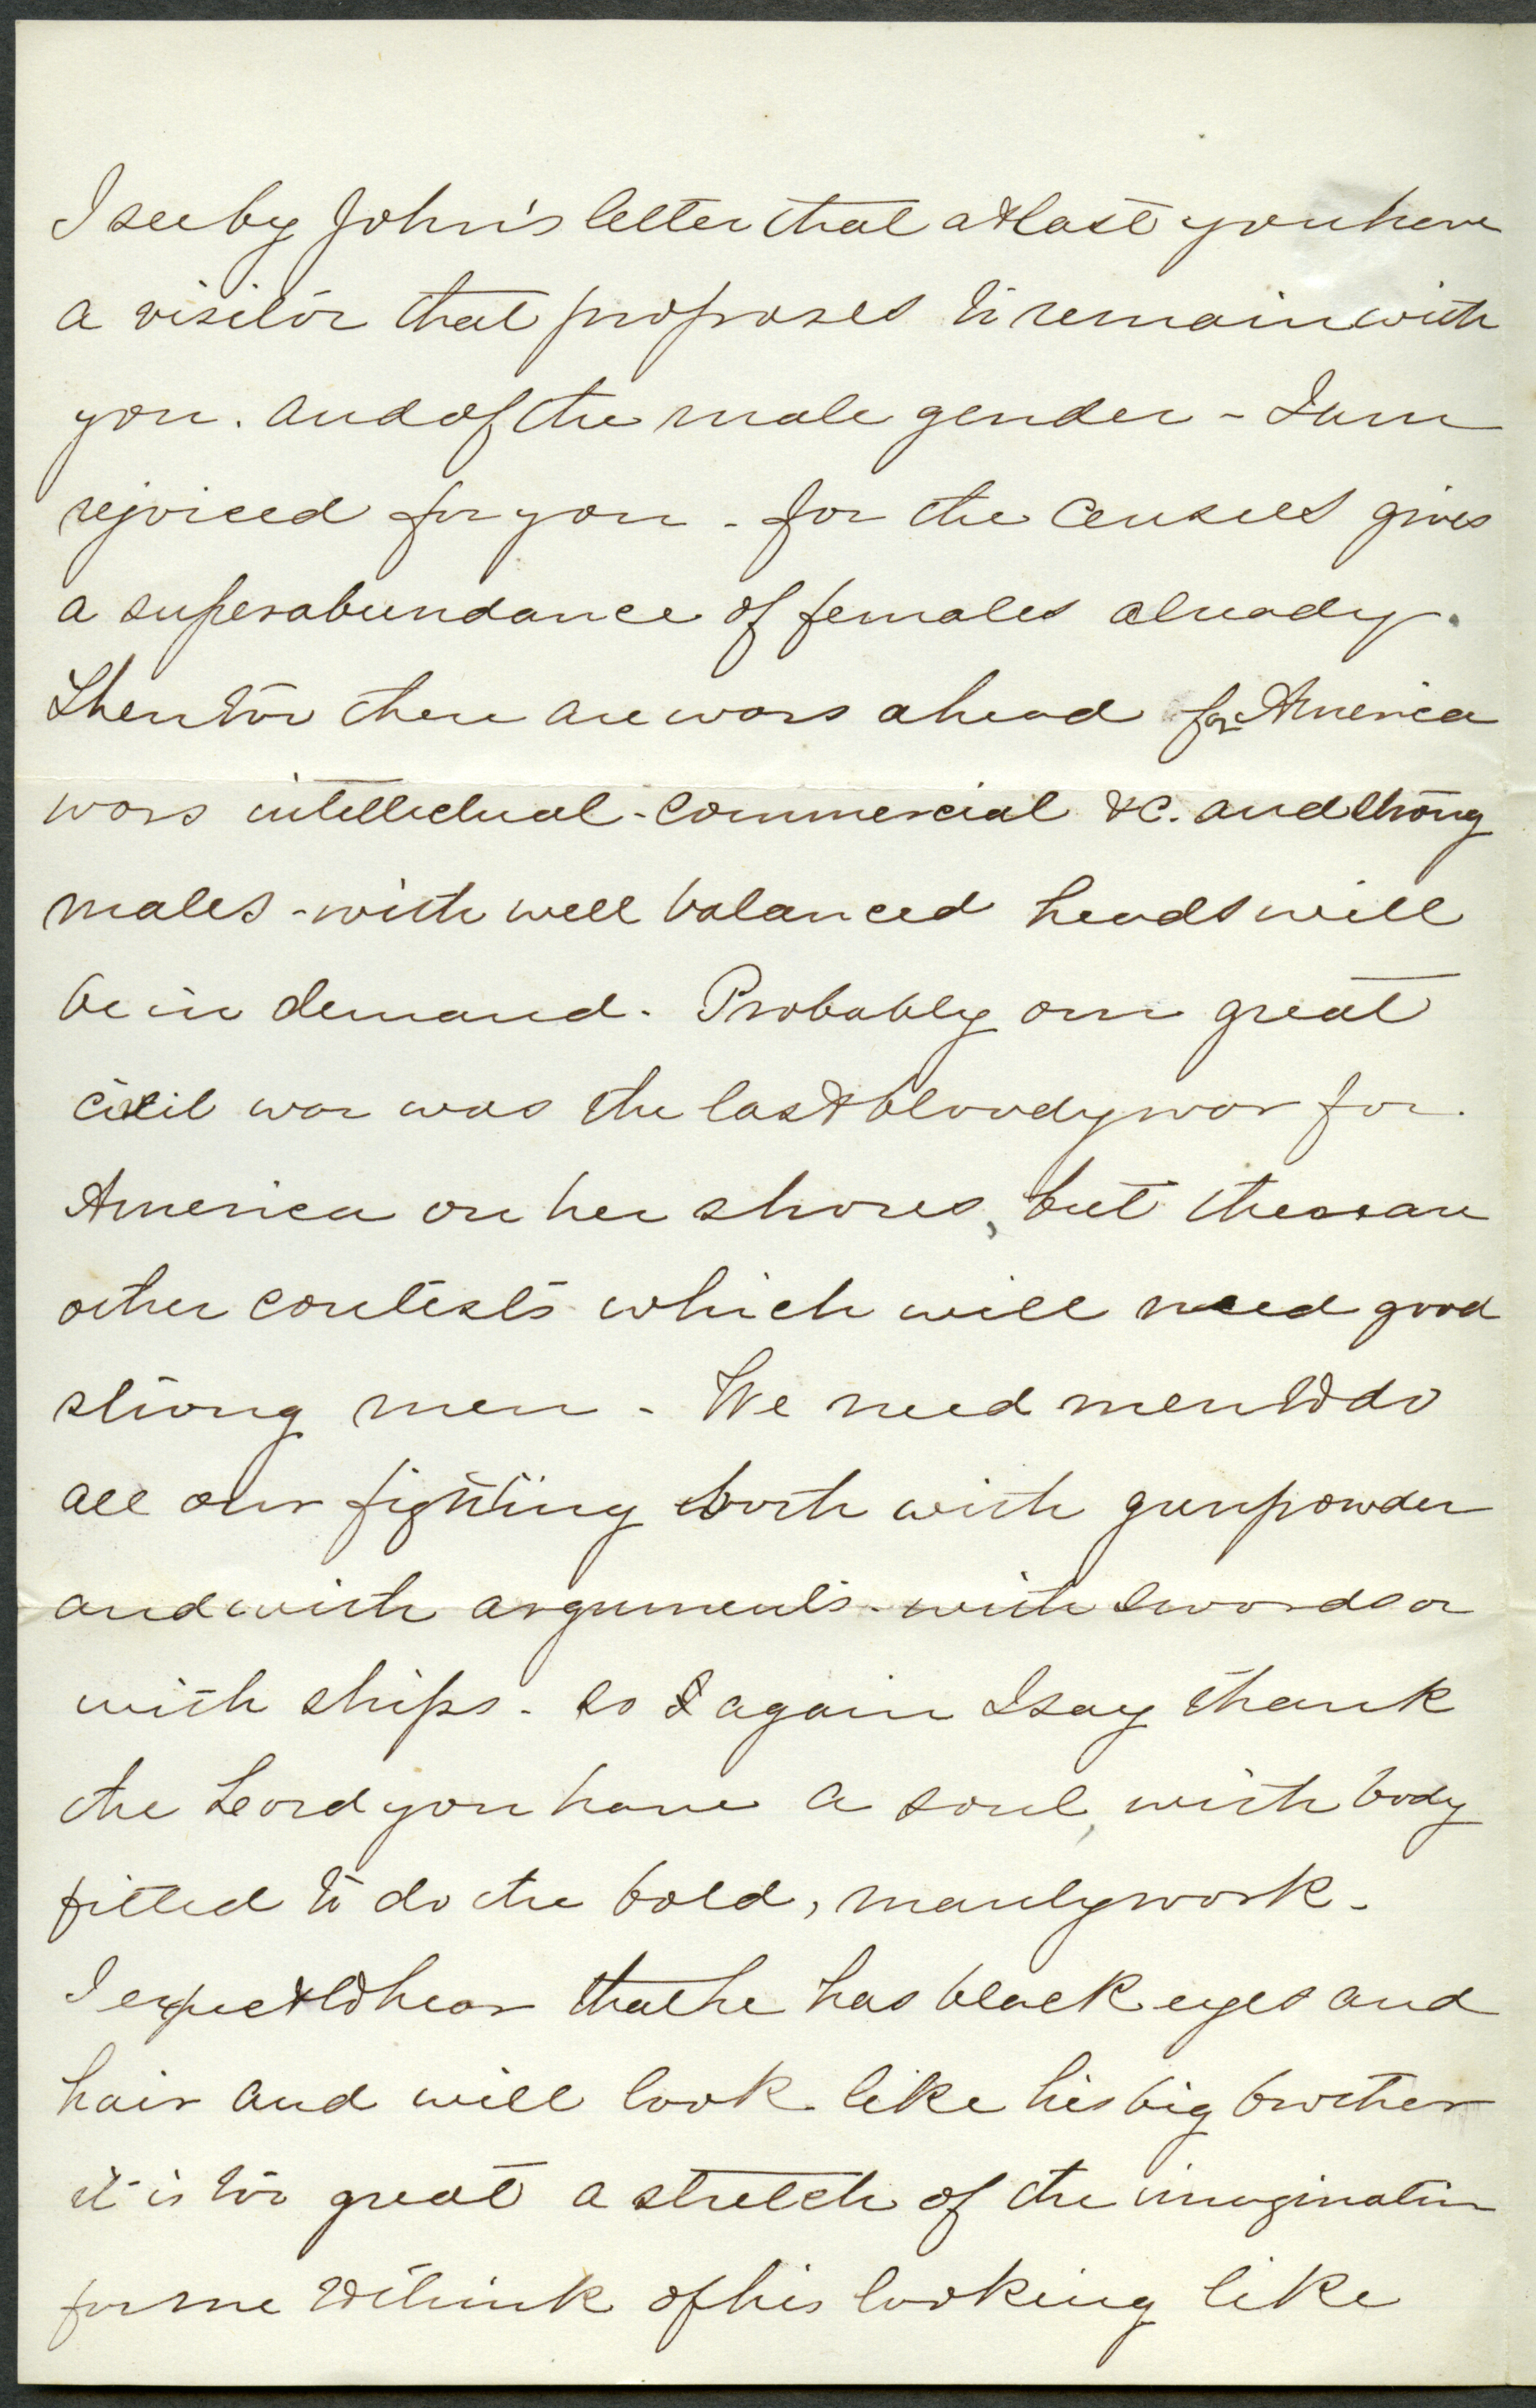 I see by John's letter that at last you have
a visitor that proposes to remain with
you. and of the male gender - I am
rejoiced for you - for the censees gives
a superabundance of females already.
Then too there are wars ahead for America
wars intellectual - commercial &c. and strong
males - with well balanced heads will
be in demand. Probably our great
civil war was the last bloody war for
America on her shores, but these are
other contests which will need good
strong men - We need men to do
all our fighting both with gunpowder
and with arguments - with swords or
with ships - so again I say thank
the Lord you have a soul, with body
fitted to do the bold, manly work -
I expect to hear that he has black eyes and
hair and will look like his big brother
it is too great a stretch of the imagination
for me to think of his looking like